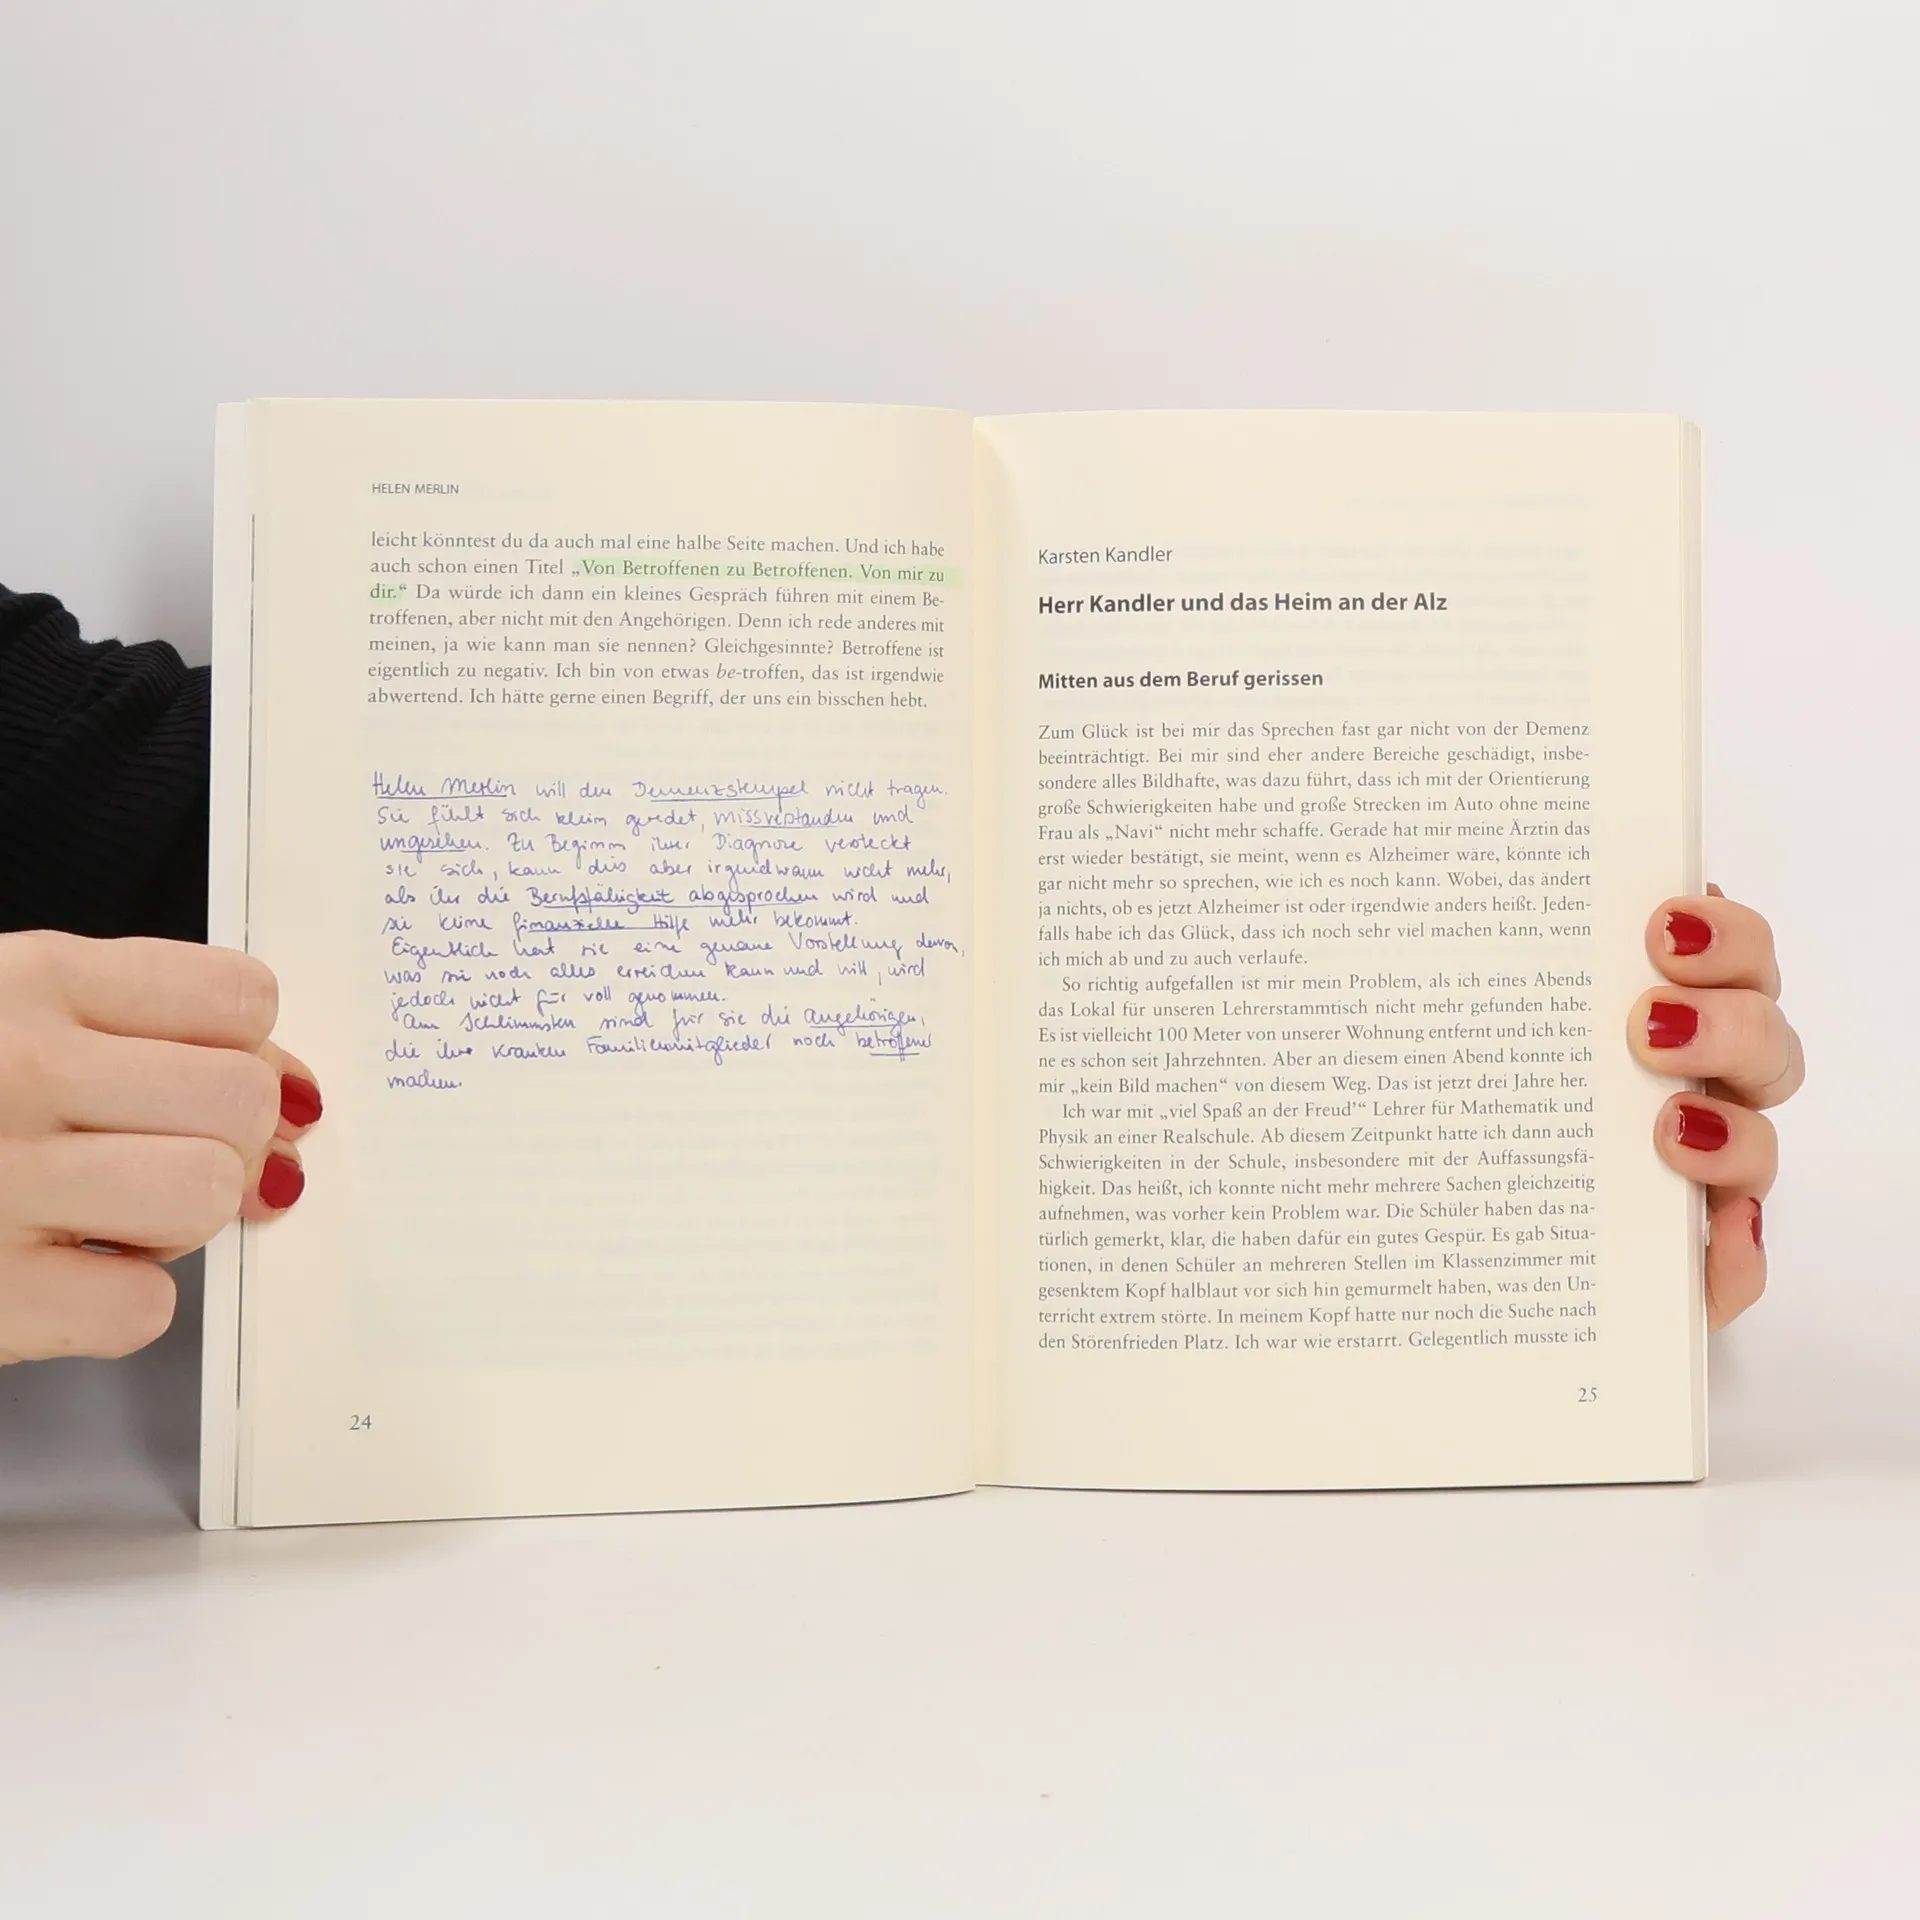 HELEN MERLIN
leicht könntest du da auch mal eine halbe Seite machen. Und ich habe
auch schon einen Titel „Von Betroffenen zu Betroffenen. Von mir zu
dir.“ Da würde ich dann ein kleines Gespräch führen mit einem Be-
troffenen, aber nicht mit den Angehörigen. Denn ich rede anderes mit
meinen, ja wie kann man sie nennen? Gleichgesinnte? Betroffene ist
eigentlich zu negativ. Ich bin von etwas be-troffen, das ist irgendwie
abwertend. Ich hätte gerne einen Begriff, der uns ein bisschen hebt.
Helen Merlin will den Demenzstempel nicht tragen.
Sie fühlt sich klein geredet, missverstanden und
ungesehen. Zu Beginn ihrer Diagnose versteckt
sie sich, kann dies aber irgendwann nicht mehr,
als ihr die Berufsfähigkeit abgesprochen wird und
sie keine finanzielle Hilfe mehr bekommt.
Eigentlich hat sie eine genaue Vorstellung davon,
was sie noch alles erreichen kann und will, wird
jedoch nicht für voll genommen.
Am Schlimmsten sind für sie die Angehörigen,
die ihre kranken Familienmitglieder noch betroffener
machen.
24
Karsten Kandler
Herr Kandler und das Heim an der Alz
Mitten aus dem Beruf gerissen
Zum Glück ist bei mir das Sprechen fast gar nicht von der Demenz
beeinträchtigt. Bei mir sind eher andere Bereiche geschädigt, insbe-
sondere alles Bildhafte, was dazu führt, dass ich mit der Orientierung
große Schwierigkeiten habe und große Strecken im Auto ohne meine
Frau als „Navi“ nicht mehr schaffe. Gerade hat mir meine Ärztin das
erst wieder bestätigt, sie meint, wenn es Alzheimer wäre, könnte ich
gar nicht mehr so sprechen, wie ich es noch kann. Wobei, das ändert
ja nichts, ob es jetzt Alzheimer ist oder irgendwie anders heißt. Jeden-
falls habe ich das Glück, dass ich noch sehr viel machen kann, wenn
ich mich ab und zu auch verlaufe.
So richtig aufgefallen ist mir mein Problem, als ich eines Abends
das Lokal für unseren Lehrerstammtisch nicht mehr gefunden habe.
Es ist vielleicht 100 Meter von unserer Wohnung entfernt und ich ken-
ne es schon seit Jahrzehnten. Aber an diesem einen Abend konnte ich
mir „kein Bild machen“ von diesem Weg. Das ist jetzt drei Jahre her.
Ich war mit „viel Spaß an der Freud’“ Lehrer für Mathematik und
Physik an einer Realschule. Ab diesem Zeitpunkt hatte ich dann auch
Schwierigkeiten in der Schule, insbesondere mit der Auffassungsfä-
higkeit. Das heißt, ich konnte nicht mehr mehrere Sachen gleichzeitig
aufnehmen, was vorher kein Problem war. Die Schüler haben das na-
türlich gemerkt, klar, die haben dafür ein gutes Gespür. Es gab Situa-
tionen, in denen Schüler an mehreren Stellen im Klassenzimmer mit
gesenktem Kopf halblaut vor sich hin gemurmelt haben, was den Un-
terricht extrem störte. In meinem Kopf hatte nur noch die Suche nach
den Störenfrieden Platz. Ich war wie erstarrt. Gelegentlich musste ich
25